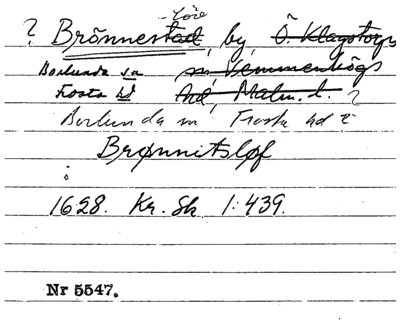 löv
? Brönnestad, by, Ö. Klagstorps
Borlunda sn Vemmenhögs
Frosta hd hd, Malm. l. ?
Borlunda sn Frosta hd
Brønnitsløf
1628. Kr. Sk 1:439.
Nr 5547.